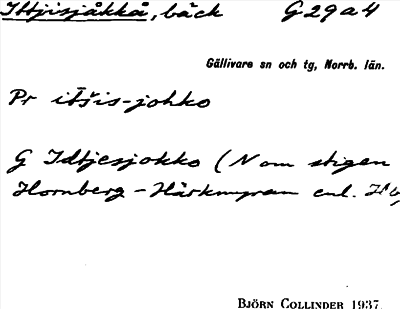 Ittjisjåkkå, bäck G29a4
Gällivare sn och tg, Norrb. län.
Pr itšis-johko
G Idtjesjokko (N om stigen
Hornberg - Härkmyran enl.
BJÖRN COLLINDER 1937.